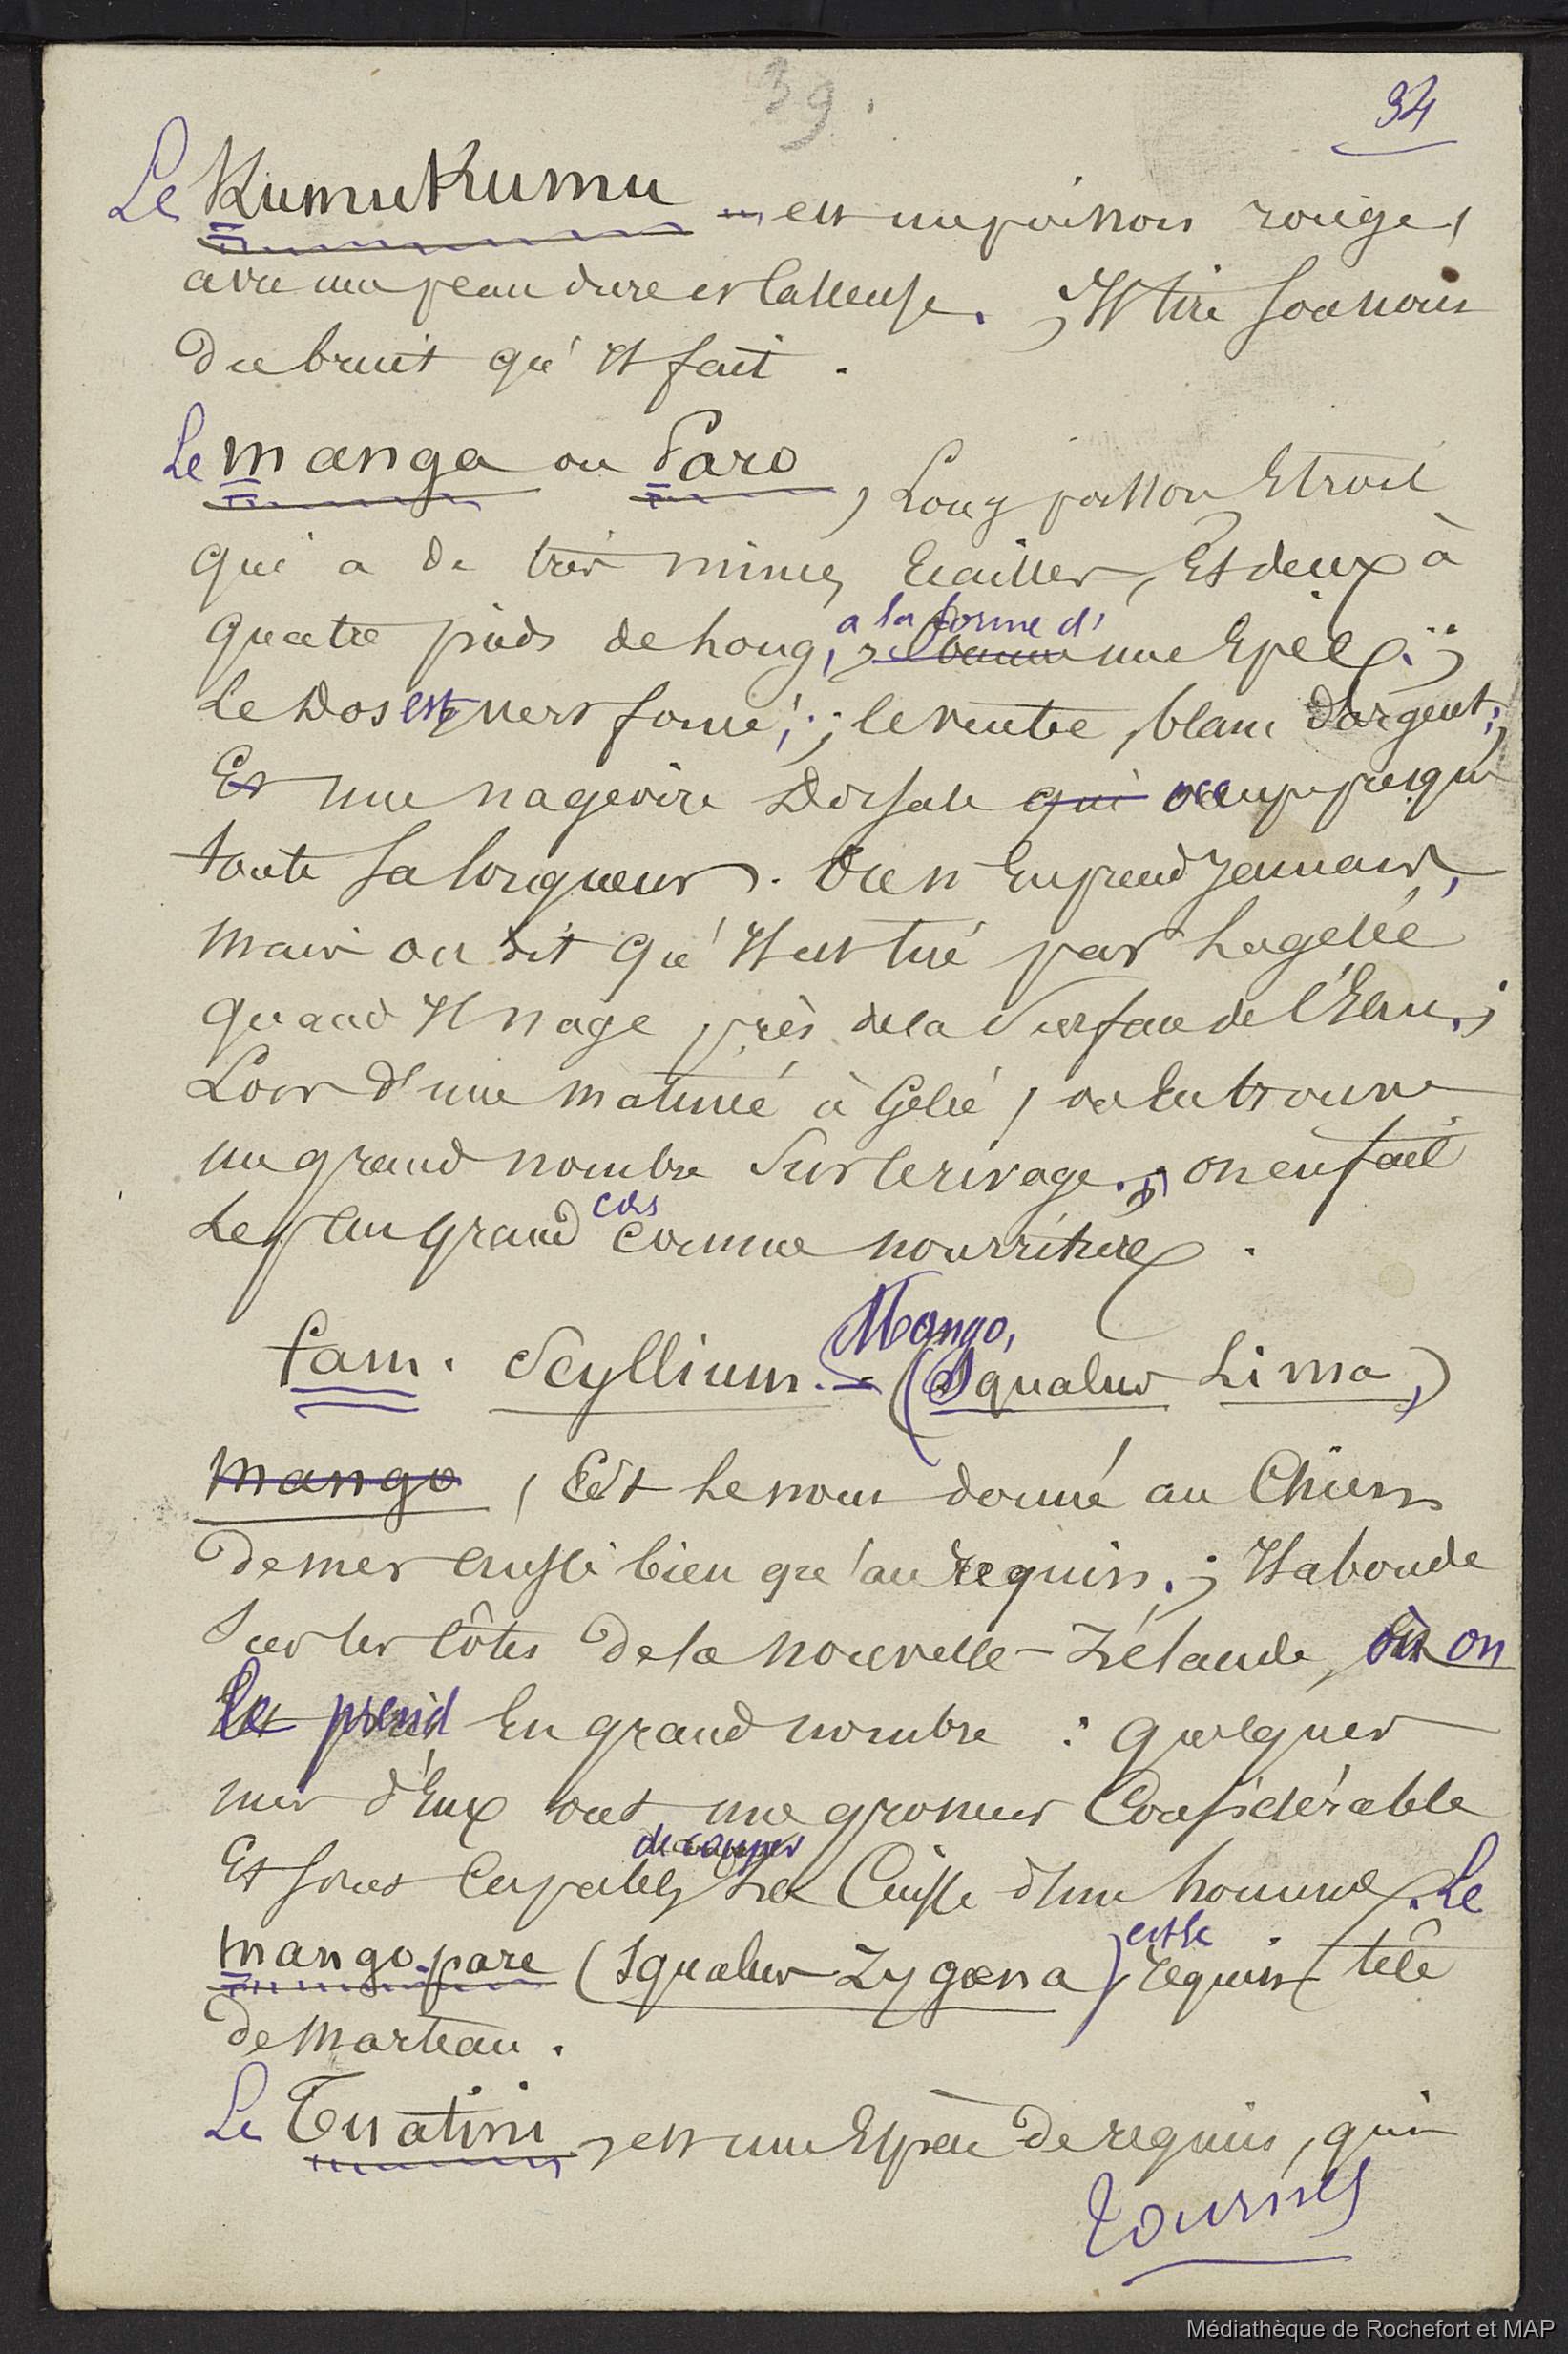 39.
94
Le Kumukumu est un poisson rouge,
avec une peau dure et calleuse. Il tire son nom
du bruit qu'il fait.
Le manga ou Paro, Long poisson Etroit
qui a de très minces Ecailles, Et deux à
quatre pieds de Long, a la forme d'
une Epée;
Le Dos est vert foncé; le ventre, blanc d'argent;
Et une nageoire Dorsale qui occupe presque
toute sa longueur. On n'En prend Jamais,
mais on dit qu'Il est tué par La gelée
quand Il nage près de la Surface de l'Eau;
Lors d'une matinée à Gelée, on En trouve
un grand nombre Sur le rivage; on en fait
le plus grand cas comme nourriture.
Mango,
fam. Scyllium. - (Squalus Lima,)
mango, Est Le nom donné au Chien
de mer aussi bien qu'au requin; Il abonde
Sur les Côtes De la nouvelle-Zélande, où on
le prend En grand nombre: quelques
uns d'Eux ont une grosseur Considérable
de couper
Et sont Capables La Cuisse d'un homme. Le
mango-pare (Squalus Zygœna) est le requin tête
de marteau.
Le Tuatini est une Espèce De requin, qui
tournez
Médiathèque de Rochefort et MAP